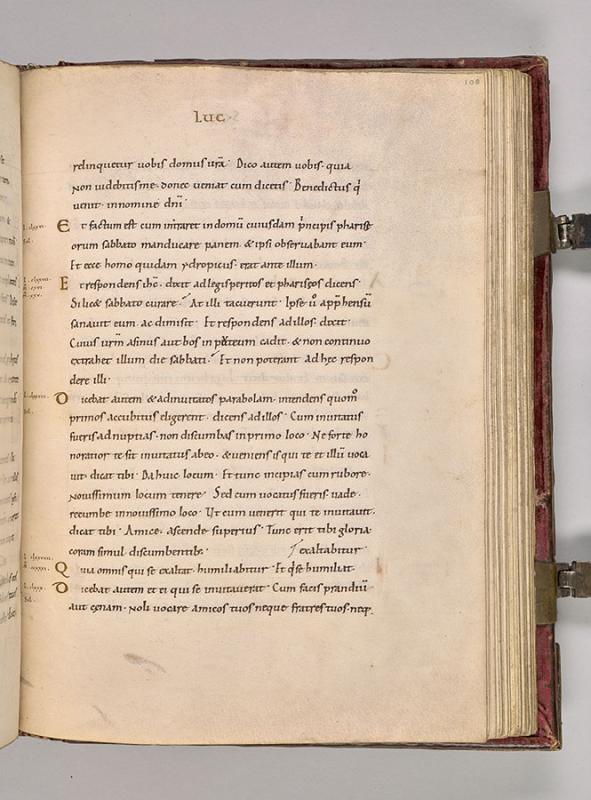 108
Luc.
relinquetur uobis domus ur̄a. Dico autem uobis. quia
non uidebitis me. donec ueniat cum dicetis. Benedictus q̇
uenit. in nomine dn̄i.
Et factum est cum intraret in domū cuiusdam principis pharise
orum sabbato manducare panem. & ipsi obseruabant eum.
Et ecce homo quidam ydropicus. erat ante illum.
Et respondens ih̄c. dixit ad legisperitos et phariseos dicens.
Si lic& sabbato curare. At illi tacuerunt. Ipse u̇ app̄hensū
sanauit eum. ac dimisit. Et respondens ad illos. dixit.
Cuius ur̄m asinus aut bos in puteum cadit. & non continuo
extrahet illum die sabbati. Et non poterant ad hęc respon
dere illi.
Dicebat autem & ad inuitatos parabolam. intendens quom̊
primos accubitus eligerent. dicens ad illos. Cum inuitatus
fueris ad nuptias. non discumbas in primo loco. Ne forte ho
noratior te sit inuitatus ab eo. & ueniens is qui te et illū uoca
uit. dicat tibi. Da huic locum. Et tunc incipias cum rubore.
nouissimum locum tenere. Sed cum uocatus fueris. uade.
recumbe in nouissimo loco. Ut cum uenerit qui te inuitauit.
dicat tibi. Amice. ascende superius. Tunc erit tibi gloria.
coram simul discumbentib:. / exaltabitur.
Quia omnis qui se exaltat. humiliabitur. Et q̇ se humiliat.
Dicebat autem et ei qui se inuitauerat. Cum facis prandiū
aut cęnam. noli uocare amicos tuos neque fratres tuos. neq;